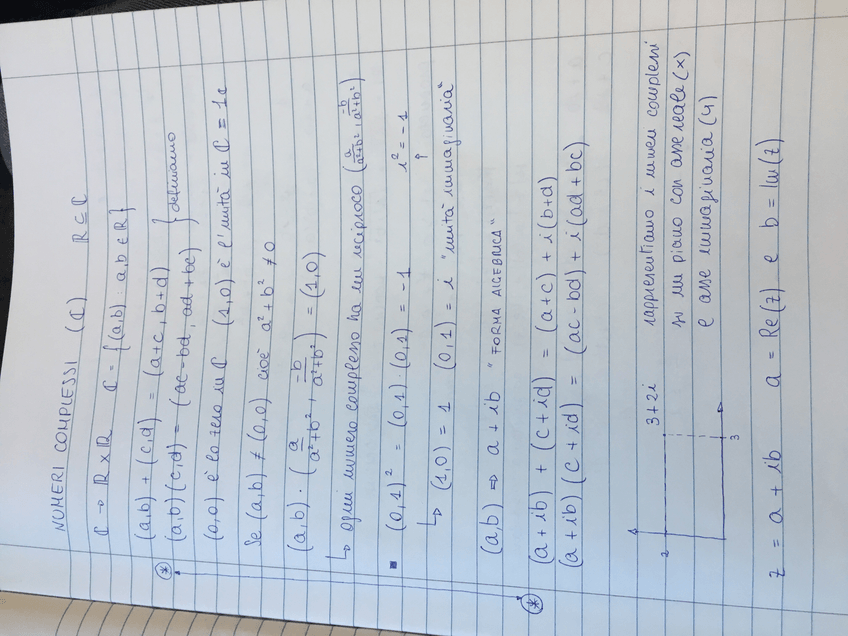 NUMERI COMPLESSI (ℂ) ℝ ⊆ ℂ
ℂ → ℝ × ℝ ℂ = {(a,b) : a,b ∈ ℝ}
(a,b) + (c,d) = (a+c, b+d)
⊛ (a,b)(c,d) = (ac-bd, ad+bc) } definiamo
(0,0) è lo zero in ℂ (1,0) è l'unità in ℂ = 1ℂ
Se (a,b) ≠ (0,0) cioè a²+b² ≠ 0
(a,b) · (a/(a²+b²), -b/(a²+b²)) = (1,0)
↳ ogni numero complesso ha un reciproco (a/(a²+b²), -b/(a²+b²))
▪ (0,1)² = (0,1)·(0,1) = -1 i² = -1
↑
↳ (1,0) = 1 (0,1) = i "unità immaginaria"
(a,b) ⇒ a + ib "FORMA ALGEBRICA"
(a+ib) + (c+id) = (a+c) + i(b+d)
⊛ (a+ib)(c+id) = (ac-bd) + i(ad+bc)
2 3+2i 3
rappresentiamo i numeri complessi
su un piano con asse reale (x)
e asse immaginaria (y)
z = a + ib a = Re(z) e b = Im(z)